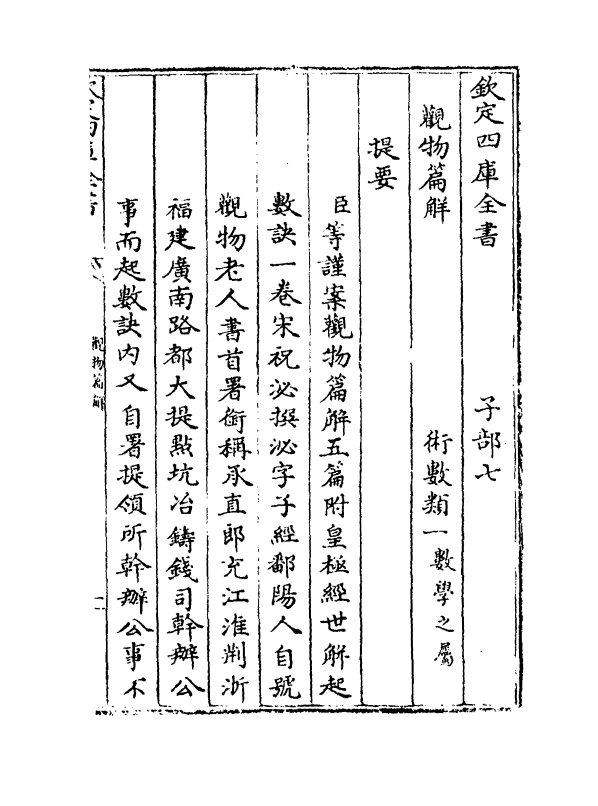 欽定四庫全書　子部七
觀物篇解　術數類一數學之屬
提要
臣等謹案觀物篇解五篇附皇極經世解起
數訣一卷宋祝泌撰泌字子經鄱陽人自號
觀物老人書首署銜稱承直郎充江淮荆浙
福建廣南路都大提㸃坑冶鑄錢司幹辦公
事而起數訣内又自署提領所幹辦公事不
欽定四庫全書　觀物篇解　一